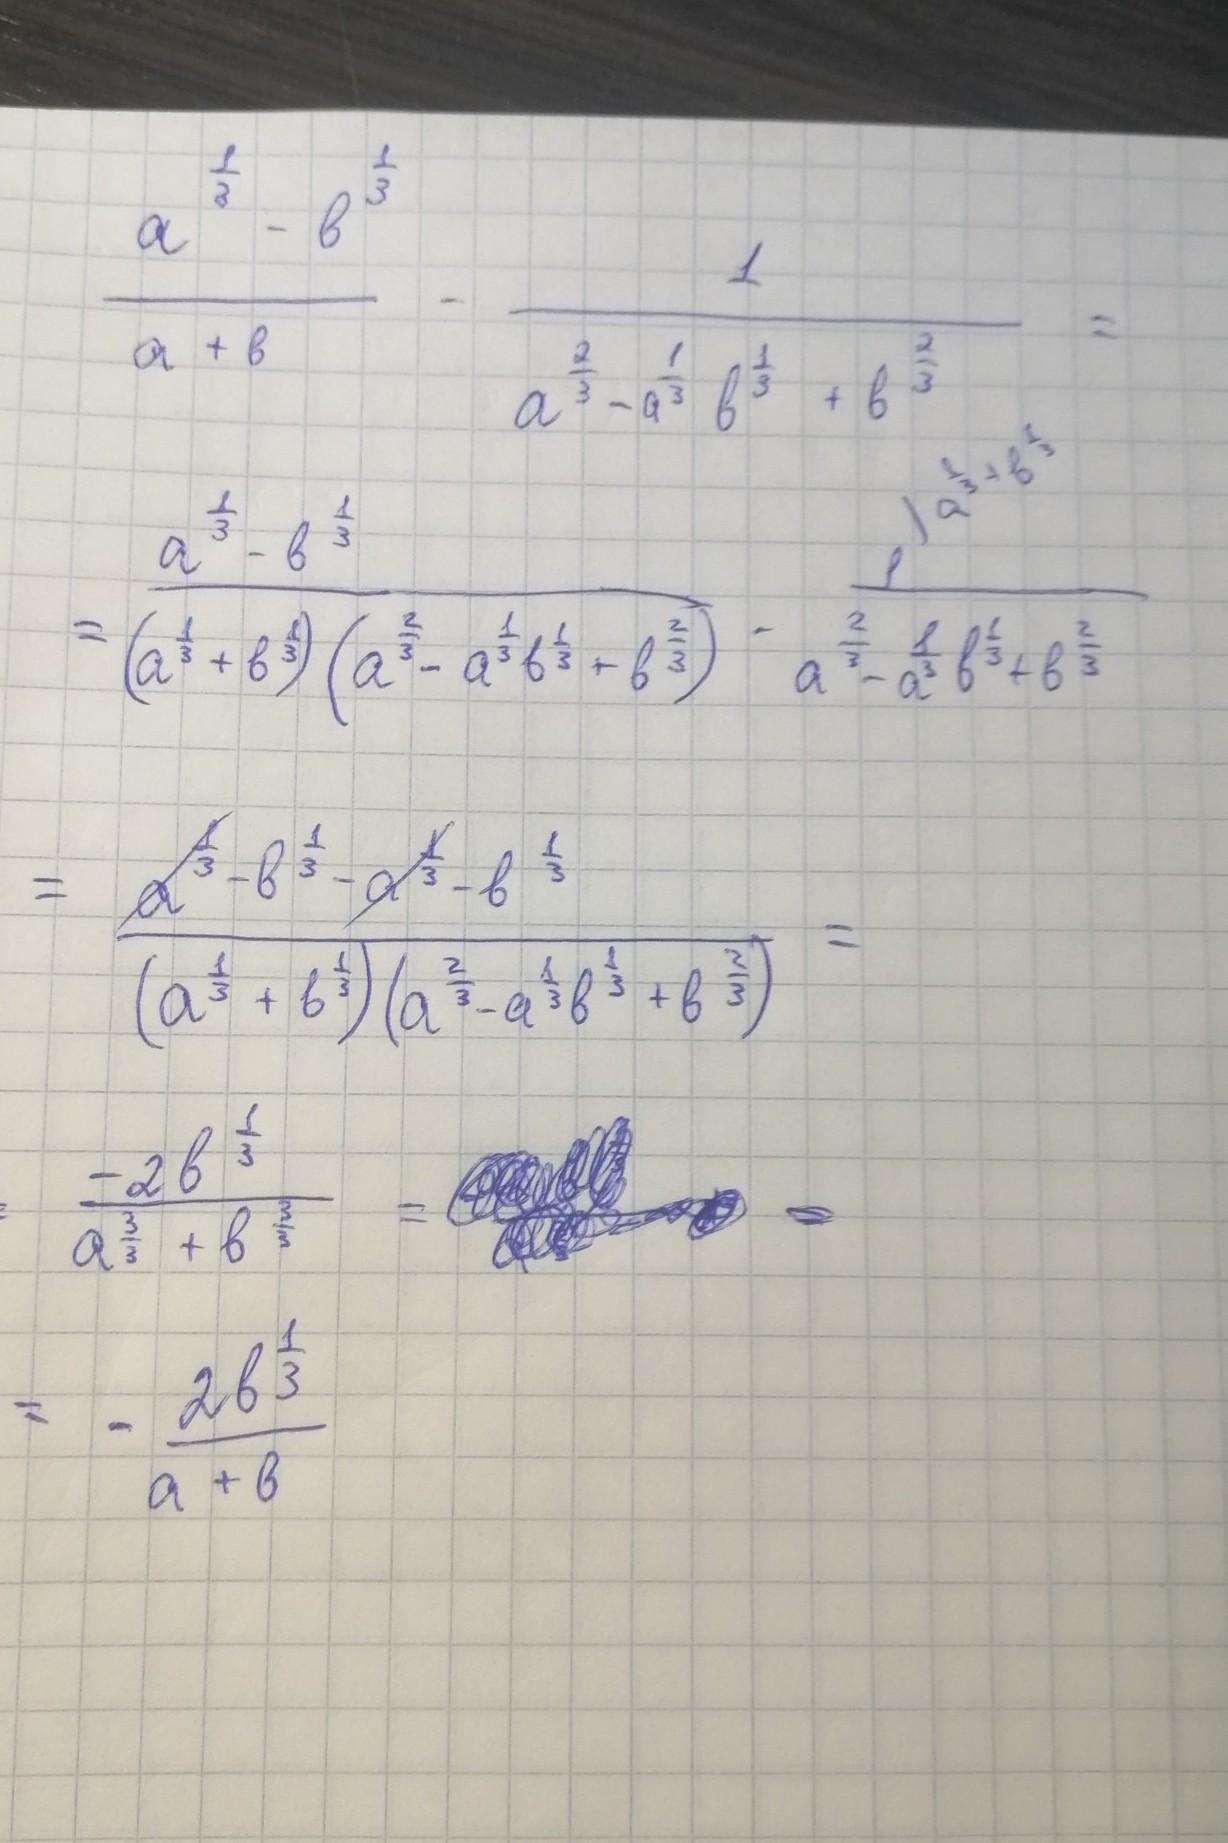 a^{1/3} - b^{1/3} / a + b - 1 / a^{2/3} - a^{1/3} b^{1/3} + b^{2/3} =
= a^{1/3} - b^{1/3} / (a^{1/3} + b^{1/3}) (a^{2/3} - a^{1/3} b^{1/3} + b^{2/3}) - 1 \ a^{1/3} + b^{1/3} / a^{2/3} - a^{1/3} b^{1/3} + b^{2/3}
= a^{1/3} - b^{1/3} - a^{1/3} - b^{1/3} / (a^{1/3} + b^{1/3}) (a^{2/3} - a^{1/3} b^{1/3} + b^{2/3}) =
= -2b^{1/3} / a^{3/3} + b^{3/3} =
= - 2b^{1/3} / a + b